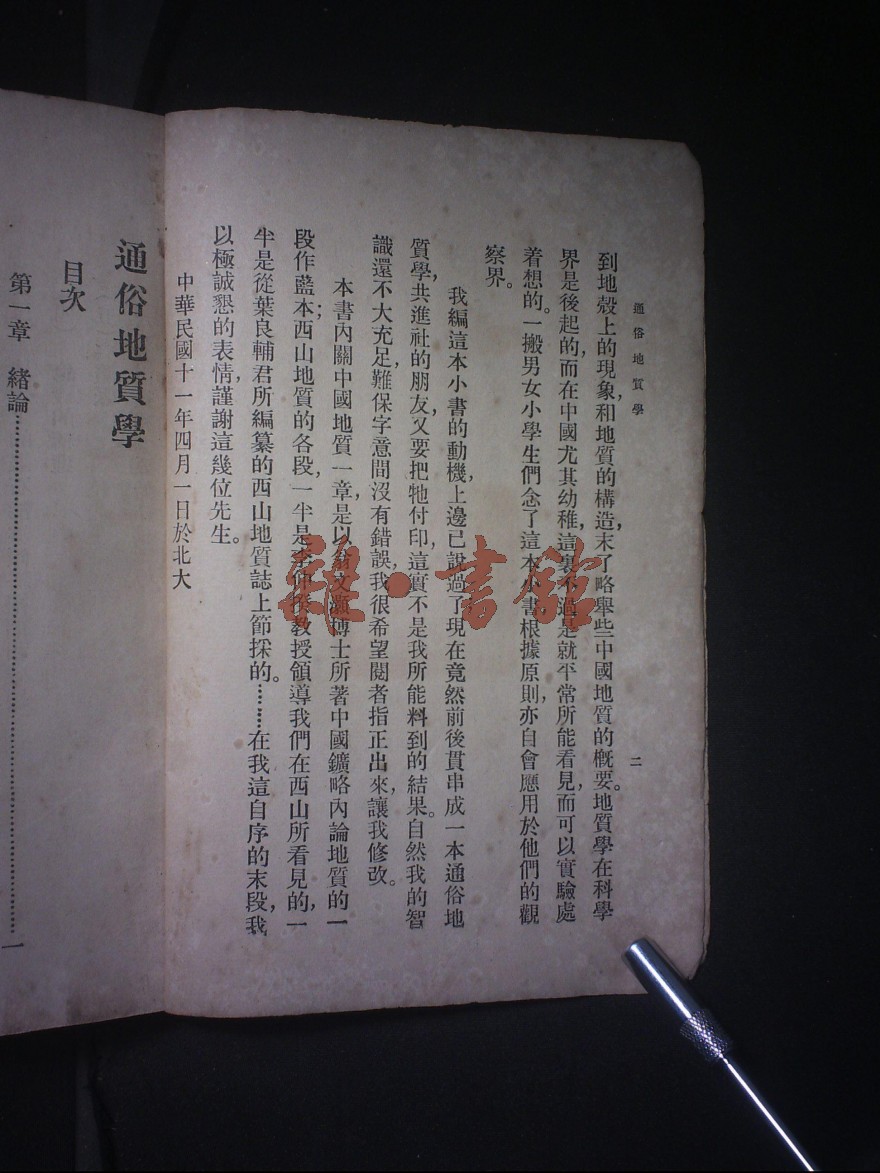 通俗地質學
二
到地殼上的現象,和地質的構造,末了略舉些中國地質的概要。地質學在科學
界是後起的,而在中國尤其幼稚,這裏不過是就平常所能看見,而可以實驗處
着想的。一搬男女小學生們念了這本小書,根據原則,亦自會應用於他們的觀
察界。
我編這本小書的動機,上邊已說過了,現在竟然前後貫串成一本通俗地
質學,共進社的朋友,又要把牠付印,這實不是我所能料到的結果。自然我的智
識還不大充足,難保字意間沒有錯誤,我很希望閱者指正出來,讓我修改。
本書內關中國地質一章,是以翁文灝博士所著中國鑛略內論地質的一
段作藍本;西山地質的各段,一半是李仲揆教授領導我們在西山所看見的,一
半是從葉良輔君所編纂的西山地質誌上節採的。……在我這自序的末段,我
以極誠懇的表情,謹謝這幾位先生。
中華民國十一年四月一日於北大
通俗地質學
目次
第一章 緒論……………………一
雜·書館